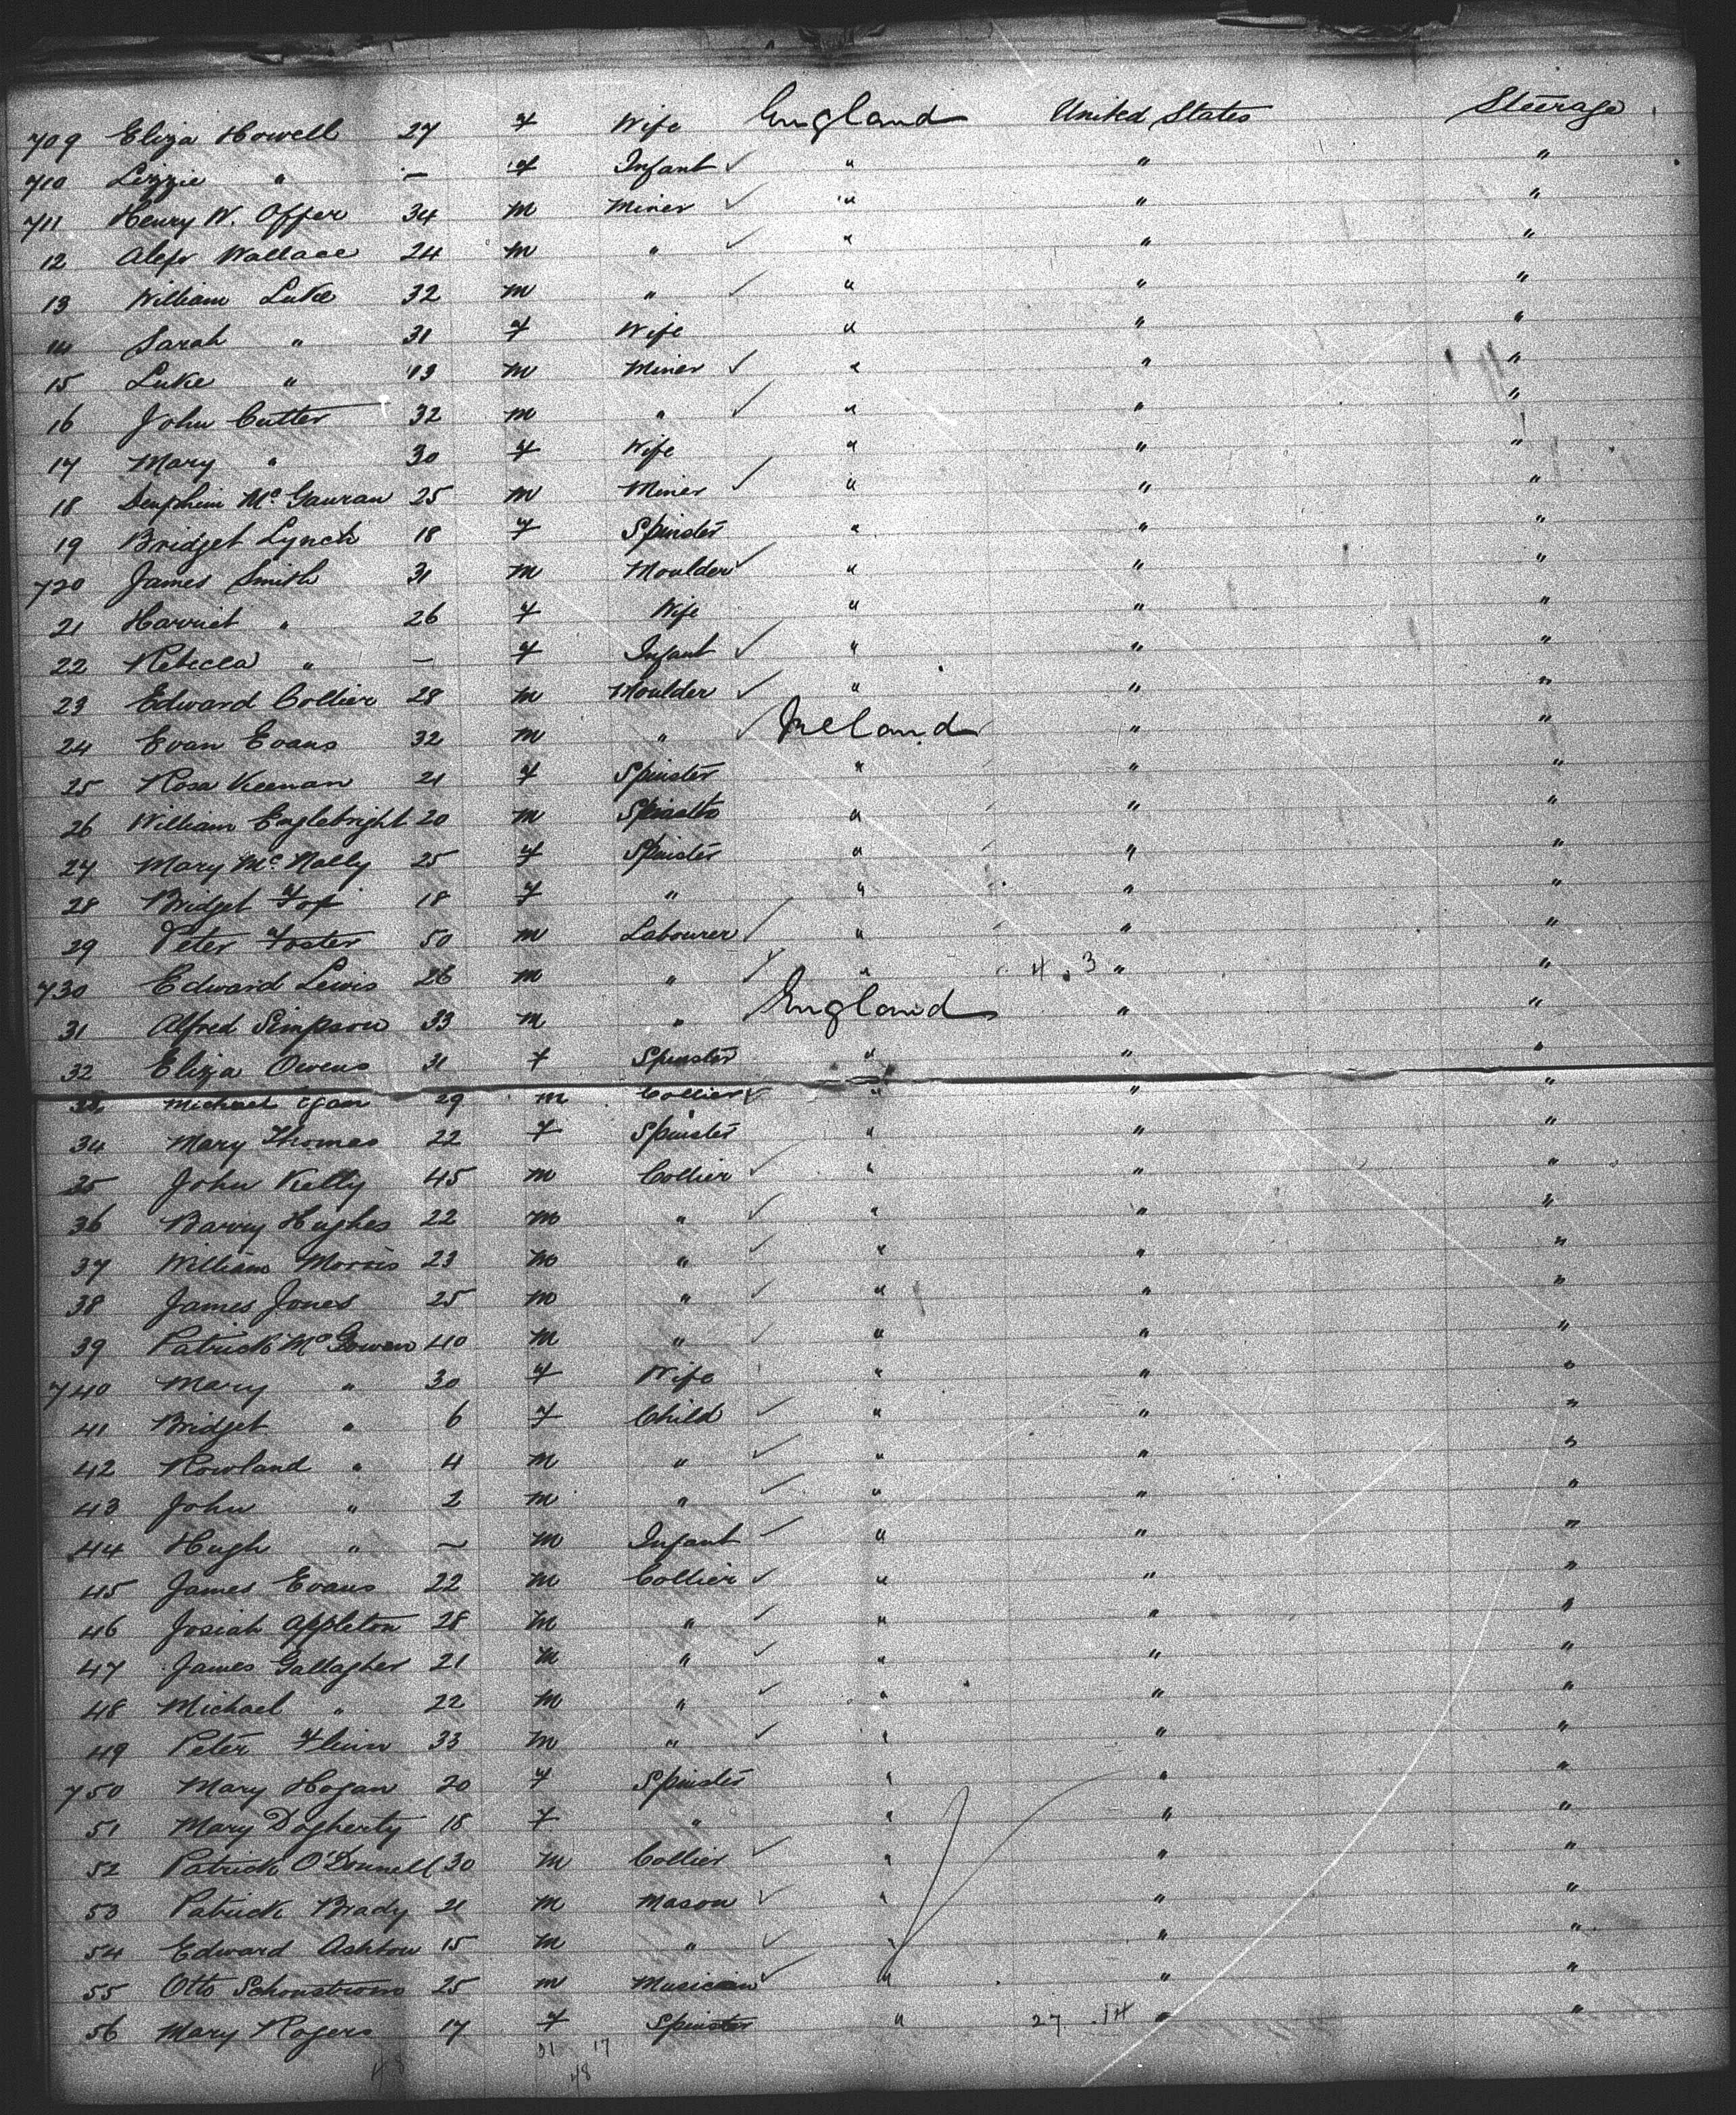 709 Eliza Howell 27 f Wife England United States Steerage
710 Lizzie " — f Infant " " "
711 Henry W. Offer 34 m Miner " " "
12 Alexr Wallace 24 m " " " "
13 William Luke 32 m " " " "
14 Sarah " 31 f Wife " " "
15 Luke " 13 m Miner " " "
16 John Cutter 32 m " " " "
17 Mary " 30 f Wife " " "
18 Mc Gauran 25 m Miner " " "
19 Bridget Lynch 18 f Spinster " " "
720 James Smith 31 m Moulder " " "
21 Harriet " 26 f Wife " " "
22 Rebecca " — f Infant " " "
23 Edward Collier 28 m Moulder " " "
24 Evan Evans 32 m " Ireland " "
25 Rosa Keenan 21 f Spinster " " "
26 William Eaglebright 20 m " " "
27 Mary Mc Nally 25 f Spinster " " "
28 Bridget Fox 18 f " " " "
29 Peter Foster 50 m Labourer " " "
730 Edward Lewis 26 m " " 4 . 3 " "
31 Alfred Simpson 33 m " England " "
32 Eliza Owens 31 f Spinster " " "
33 Michael Egan 29 m Collier " " "
34 Mary Thomas 22 f Spinster " " "
35 John Kelly 45 m Collier " " "
36 Barry Hughes 22 m " " " "
37 William Morris 23 m " " " "
38 James Jones 25 m " " " "
39 Patrick Mc Gowan 40 m " " " "
740 Mary " 30 f Wife " " "
41 Bridget " 6 f Child " " "
42 Rowland " 4 m " " " "
43 John " 2 m " " " "
44 Hugh " — m Infant " " "
45 James Evans 22 m Collier " " "
46 Josiah Appleton 28 m " " " "
47 James Gallagher 21 m " " " "
48 Michael " 22 m " " " "
49 Peter Flinn 33 m " " " "
750 Mary Hogan 20 f Spinster " " "
51 Mary Dogherty 18 f " " " "
52 Patrick O'Donnell 30 m Collier " " "
53 Patrick Brady 21 m Mason " " "
54 Edward Ashton 15 m " " " "
55 Otto Schonstrom 25 m Musician " " "
56 Mary Rogers 17 f Spinster " 27 . 14 " "
31 17
48 48